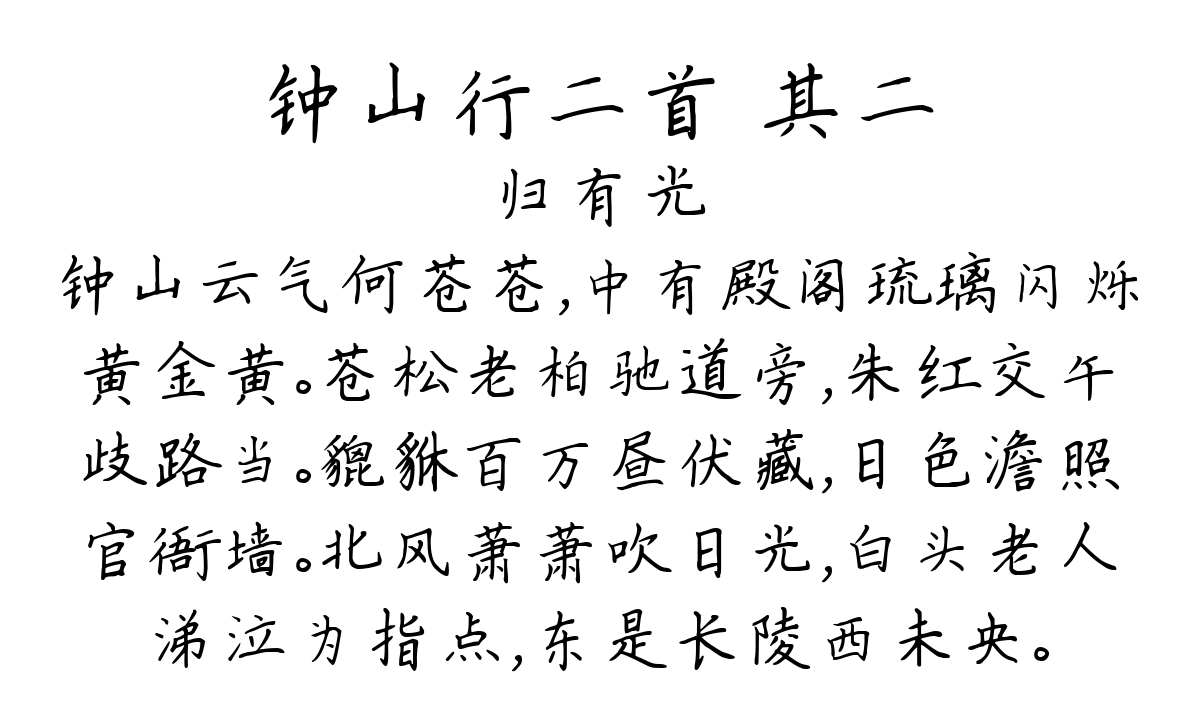 钟山行二首 其二
归有光
钟山云气何苍苍,中有殿阁琉璃闪烁
黄金黄。苍松老柏驰道旁,朱红交午
歧路当。貔貅百万昼伏藏,日色澹照
官衙墙。北风萧萧吹日光,白头老人
涕泣为指点,东是长陵西未央。